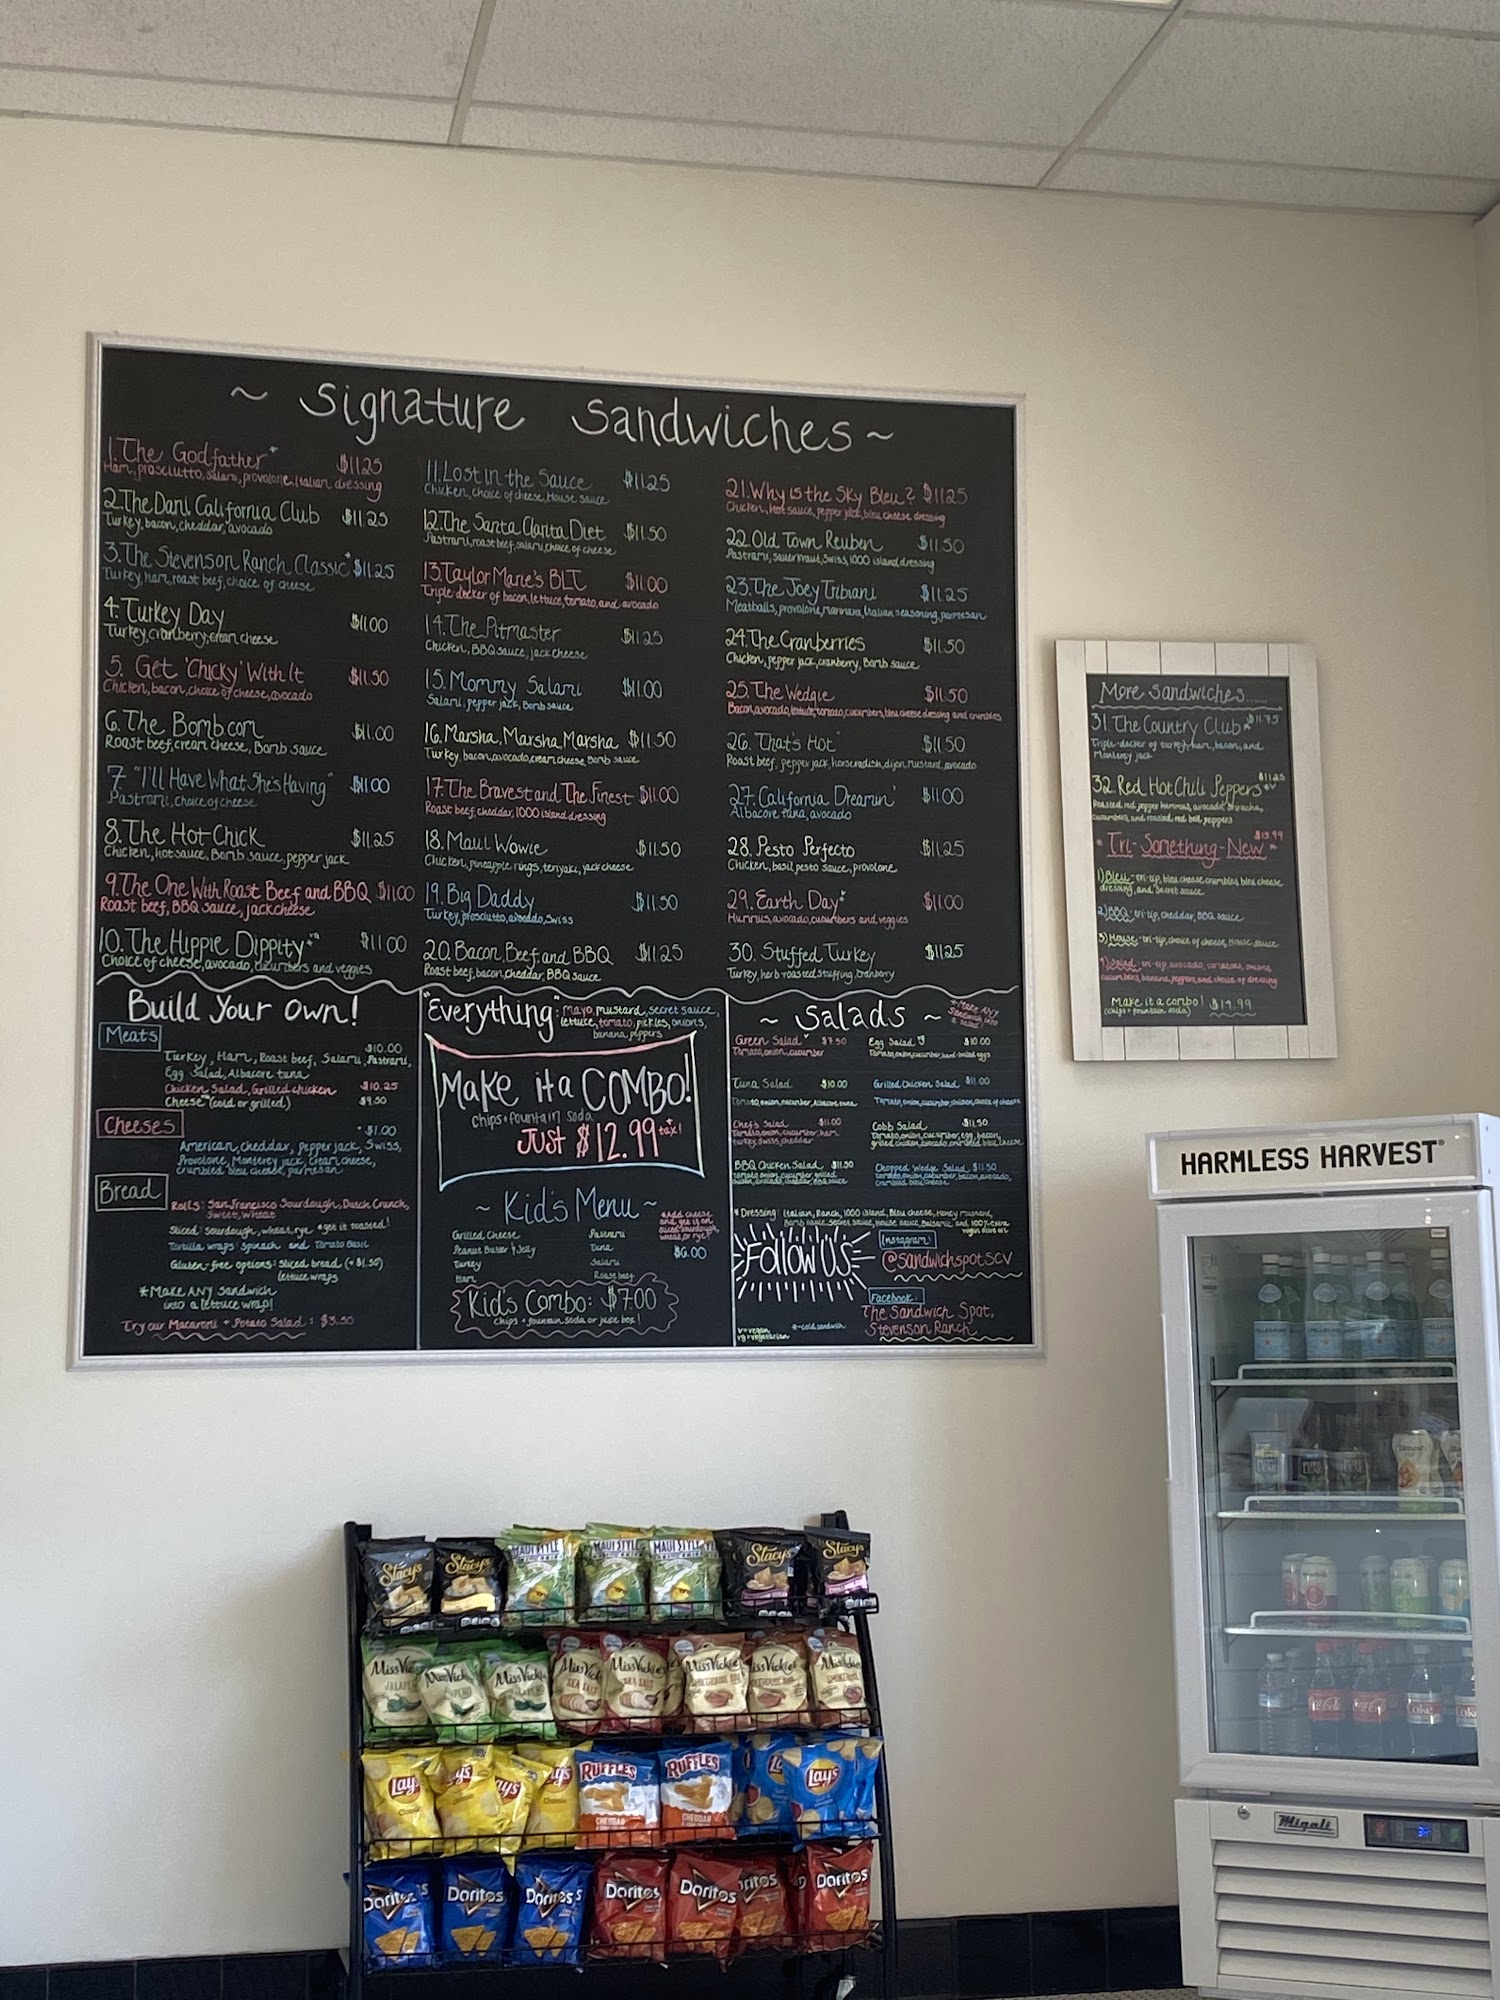 ~ Signature Sandwiches ~
1. The Godfather* $11.25
Ham, prosciutto, salami, provolone, Italian dressing
2. The Dani California Club $11.25
Turkey, bacon, cheddar, avocado
3. The Stevenson Ranch Classic* $11.25
Turkey, ham, roast beef, choice of cheese
4. Turkey Day $11.00
Turkey, cranberry, cream cheese
5. Get 'Chicky' With It $11.50
Chicken, bacon, choice of cheese, avocado
6. The Bombcom $11.00
Roast beef, cream cheese, Bomb sauce
7. "I'll Have What She's Having" $11.00
Pastrami, choice of cheese
8. The Hot Chick $11.25
Chicken, hot sauce, Bomb sauce, pepper jack
9. The One With Roast Beef and BBQ $11.00
Roast beef, BBQ sauce, jack cheese
10. The Hippie Dippity $11.00
Choice of cheese, avocado, cucumbers and veggies
11. Lost in the Sauce $11.25
Chicken, choice of cheese, House sauce
12. The Santa Clarita Diet $11.50
Pastrami, roast beef, salami, choice of cheese
13. Taylor Marie's BLT $11.00
Triple decker of bacon, lettuce, tomato, and avocado
14. The Pitmaster $11.25
Chicken, BBQ sauce, jack cheese
15. Mommy Salami $11.00
Salami, pepper jack, Bomb sauce
16. Marsha, Marsha, Marsha $11.50
Turkey, bacon, avocado, cream cheese, Bomb sauce
17. The Bravest and The Finest $11.00
Roast beef, cheddar, 1000 island dressing
18. Maui Wowie $11.50
Chicken, pineapple rings, teriyaki, jack cheese
19. Big Daddy $11.50
Turkey, prosciutto, avocado, Swiss
20. Bacon, Beef, and BBQ $11.25
Roast beef, bacon, cheddar, BBQ sauce
21. Why is the Sky Bleu? $11.25
Chicken, hot sauce, pepper jack, bleu cheese dressing
22. Old Town Reuben $11.50
Pastrami, sauerkraut, Swiss, 1000 island dressing
23. The Joey Tribiani $11.25
Meatballs, provolone, marinara, Italian seasoning, parmesan
24. The Cranberries $11.50
Chicken, pepper jack, cranberry, Bomb sauce
25. The Wedgie $11.50
Bacon, avocado, lettuce, tomato, cucumbers, bleu cheese dressing and crumbles
26. That's Hot $11.50
Roast beef, pepper jack, horseradish, dijon mustard, avocado
27. California Dreamin' $11.00
Albacore tuna, avocado
28. Pesto Perfecto $11.25
Chicken, basil pesto sauce, provolone
29. Earth Day $11.00
Hummus, avocado, cucumbers and veggies
30. Stuffed Turkey $11.25
Turkey, herb-roasted stuffing, cranberry
Build Your Own!
Meats
$10.00
Turkey, Ham, Roast beef, Salami, Pastrami,
Egg Salad, Albacore tuna
Chicken Salad, Grilled chicken $10.25
Cheese (cold or grilled) $9.50
Cheeses
+$1.00
American, cheddar, pepper jack, Swiss,
Provolone, Monterey jack, cream cheese,
crumbled bleu cheese, parmesan
Bread
Rolls: San Francisco Sourdough, Dutch Crunch,
Sweet, wheat
Sliced: sourdough, wheat, rye *get it toasted!
Tortilla wraps: Spinach and Tomato Basil
Gluten-free options: Sliced bread (+$1.50)
lettuce wraps
*Make ANY sandwich
into a lettuce wrap!
Try our Macaroni + Potato Salad: $3.50
"Everything": mayo, mustard, secret sauce,
lettuce, tomato, pickles, onions,
banana peppers
Make it a COMBO!
chips + fountain soda
Just $12.99 +tax!
~ Kid's Menu ~
*Add cheese
and get it on
sliced sourdough,
wheat, or rye!
Grilled Cheese
Peanut Butter + Jelly
Turkey
Ham
Pastrami
Tuna
Salami
Roast beef
$6.00
Kid's Combo: $7.00
chips + fountain soda or juice box!
~ Salads ~
*Make ANY
sandwich into
a salad!
Green Salad $7.50
Tomato, onion, cucumber
Egg Salad $10.00
Tomato, onion, cucumber, hard-boiled eggs
Tuna Salad $10.00
Tomato, onion, cucumber, Albacore tuna
Grilled Chicken Salad $11.00
Tomato, onion, cucumber, chicken, choice of cheese
Chef's Salad
Tomato, onion, cucumber, ham,
turkey, swiss, cheddar
Cobb Salad $11.50
Tomato, onion, cucumber, egg, bacon,
grilled chicken, avocado, crumbled bleu cheese
BBQ Chicken Salad $11.50
Chopped Wedge Salad $11.50
Tomato, onion, cucumber, bacon, avocado,
crumbled bleu cheese
*Dressing: Italian, Ranch, 1000 island, Bleu cheese, Honey mustard,
Bomb sauce, Secret sauce, House sauce, Balsamic, and 100% extra
virgin olive oil
Follow US
Instagram:
@sandwichspotscv
Facebook:
The Sandwich Spot,
Stevenson Ranch
v=vegan
vg=vegetarian
*=cold sandwich
More Sandwiches......
31. The Country Club* $11.75
Triple-decker of turkey, ham, bacon, and
Monterey jack
32. Red Hot Chili Peppers $11.25
Roasted red pepper hummus, avocado, Sriracha,
cucumbers, and roasted red bell peppers
"Tri-Something-New" $13.99
1) Bleu- tri-tip, bleu cheese crumbles, bleu cheese
dressing, and secret sauce
2) BBQ- tri-tip, cheddar, BBQ sauce
3) House- tri-tip, choice of cheese, House sauce
4) Salad- tri-tip, avocado, tomatoes, onions,
cucumbers, banana peppers, and choice of dressing
Make it a combo! $14.99
(chips + fountain soda)
HARMLESS HARVEST
Stacy's
Stacy's
MAUI STYLE
MAUI STYLE
MAUI STYLE
Stacy's
Stacy's
Miss Vickie's
JALAPEÑO
Miss Vickie's
Miss Vickie's
Miss Vickie's
SEA SALT
Miss Vickie's
SEA SALT
Miss Vickie's
SMOKEHOUSE BBQ
Miss Vickie's
Miss Vickie's
Lay's
Classic
Lay's
Lay's
Lay's
RUFFLES
CHEDDAR
RUFFLES
CHEDDAR
Lay's
Doritos
Doritos
Doritos
Doritos
Doritos
Doritos
Doritos
S.PELLEGRINO
Coke
Coke
Migali